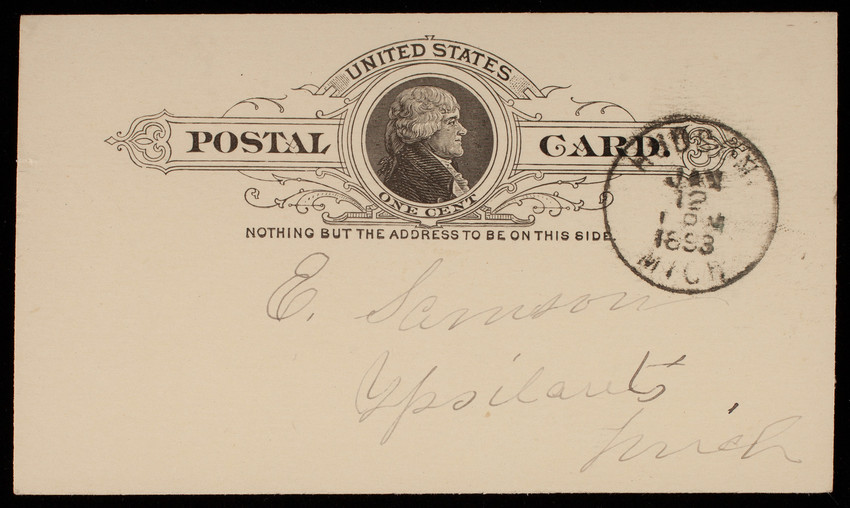 UNITED STATES
POSTAL CARD.
ONE CENT
NOTHING BUT THE ADDRESS TO BE ON THIS SIDE.
JAN
12
1893
MICH
E. Samson
Ypsilanti
Mich